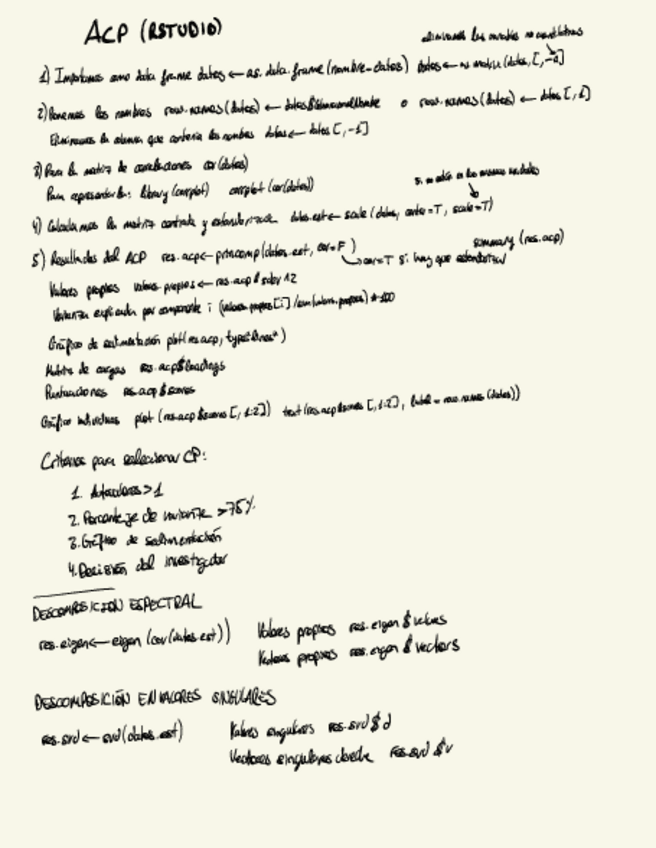 ACP (RSTUDIO)
eliminamos las variables no cuantitativas
1) Importamos como data frame datos ← as.data.frame(nombre-datos) datos ← as.matrix(datos[,-a])
2) Ponemos los nombres row.names(datos) ← o row.names(datos) ← datos[,1]
Eliminamos la columna que contenía los nombres datos ← datos[,-1]
3) Para la matriz de correlaciones cor(datos)
Para representarla: library(corrplot) corrplot(cor(datos))
si no están en las mismas unidades
4) Calculamos la matriz centrada y estandarizada datos.est ← scale(datos, center=T, scale=T)
5) Resultados del ACP res.acp ← princomp(datos.est, cor=F) summary(res.acp)
cor=T si hay que estandarizar
Valores propios valores.propios ← res.acp$sdev^2
Varianza explicada por componente i (valores.propios[i]/sum(valores.propios))*100
Gráfico de sedimentación plot(res.acp, type="lines")
Matriz de cargas res.acp$loadings
Puntuaciones res.acp$scores
Gráfico individuos plot(res.acp$scores[,1:2]) text(res.acp$scores[,1:2], label=row.names(datos))
Criterios para seleccionar CP:
1. Autovalores>1
2. Porcentaje de varianza >75%
3. Gráfico de sedimentación
4. Decisión del investigador
DESCOMPOSICIÓN ESPECTRAL
res.eigen ← eigen(cov(datos.est)) Valores propios res.eigen$values
Vectores propios res.eigen$vectors
DESCOMPOSICIÓN EN VALORES SINGULARES
res.svd ← svd(datos.est) Valores singulares res.svd$d
Vectores singulares derecha res.svd$v